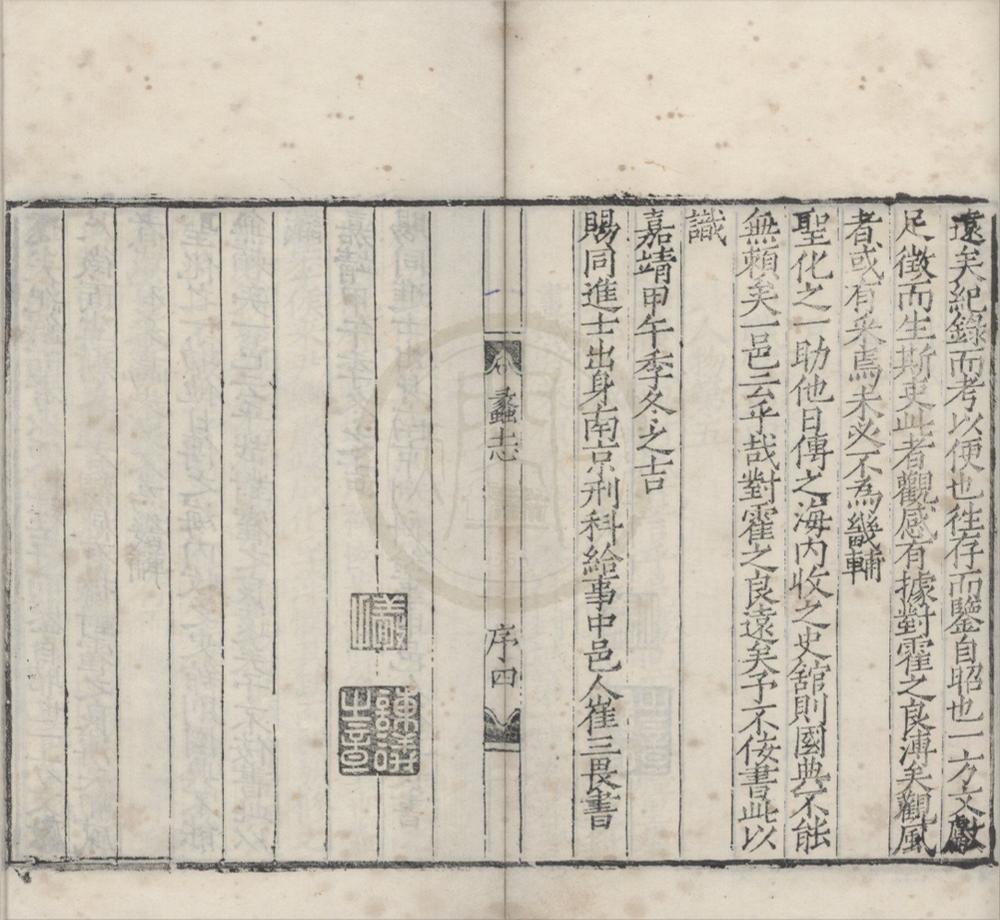 遠矣紀錄而考以便也徃存而鑒自昭也一方文獻
足徵而生斯吏此者觀感有據對霍之良溥矣觀風
者或有采焉未必不為畿輔
聖化之一助他日傳之海內收之史舘則國典不能
無賴矣一邑云乎哉對霍之良遠矣予不佞書此以
識
嘉靖甲午季冬之吉
賜同進士出身南京刑科給事中邑人崔三畏書
蠡志
序四